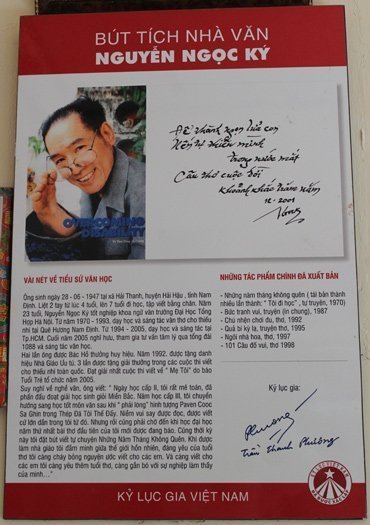 BÚT TÍCH NHÀ VĂN
NGUYỄN NGỌC KÝ
Để thành ngọn lửa con
Nến tự thiêu mình
trong nước mắt
Câu thơ cuộc đời
khoảnh khắc trăm năm
12.2001
VÀI NÉT VỀ TIỂU SỬ VĂN HỌC
Ông sinh ngày 28 - 06 -1947 tại xã Hải Thanh, huyện Hải Hậu , tỉnh Nam
Định. Liệt 2 tay từ lúc 4 tuổi, lên 7 tuổi đi học, tập viết bằng chân. Năm
23 tuổi, Nguyễn Ngọc Ký tốt nghiệp khoa ngữ văn trường Đại Học Tổng
Hợp Hà Nội. Từ năm 1970 - 1993, dạy học và sáng tác văn thơ cho thiếu
nhi tại Quê Hương Nam Định. Từ 1994 - 2005, dạy học và sáng tác tại
Tp.HCM. Cuối năm 2005 nghỉ hưu, tham gia tư vấn tâm lý qua tổng đài
1088 và sáng tác văn thơ.
Hai lần ông được Bác Hồ thưởng huy hiệu. Năm 1992, được tặng danh
hiệu Nhà Giáo Ưu tú, 3 lần được tặng giải thưởng trong các cuộc thi viết
cho thiếu nhi toàn quốc. Đạt giải nhất cuộc thi viết về " Mẹ Tôi" do báo
Tuổi Trẻ tổ chức năm 2005.
Suy nghĩ về nghề văn, ông viết: " Ngày học cấp II, tôi rất mê toán, đã
phấn đấu đoạt giải học sinh giỏi Miền Bắc. Năm học cấp III, tôi chuyển
hướng sang học tốt môn văn sau khi " phải lòng" hình tượng Paven Cooc
Sa Ghin trong Thép Đã Tôi Thế Đấy. Niềm vui say được đọc, được viết
cứ lớn dần trong tôi từ đó. Nhưng rồi cũng phải chờ đến khi học đại học
năm thứ nhất bài thơ đầu tiên của tôi mới được đăng báo. Cũng thời kỳ
này tôi đặt bút viết tự chuyện Những Năm Tháng Không Quên. Khi được
làm nhà giáo tôi đắm mình giữa thế giới hồn nhiên, đáng yêu của tuổi
thơ tôi càng cháy bỏng nguyện ước viết cho các em. Và càng viết cho
các em tôi càng yêu thêm tuổi thơ, càng gắn bó với sự nghiệp làm thầy
của mình..."
NHỮNG TÁC PHẨM CHÍNH ĐÃ XUẤT BẢN
- Những năm tháng không quên ( tái bản thành
nhiều lần thành: " Tôi đi học" , tự truyện, 1970)
- Bức tranh vui, truyện (in chung), 1987
- Chú nhện chơi đu, thơ, 1992
- Quả bí kỳ lạ, truyện thơ, 1995
- Ngôi nhà hoa, thơ, 1997
- 101 Câu đố vui, thơ 1998
Kỷ lục gia:
Trần Thanh Phương
KỶ LỤC GIA VIỆT NAM